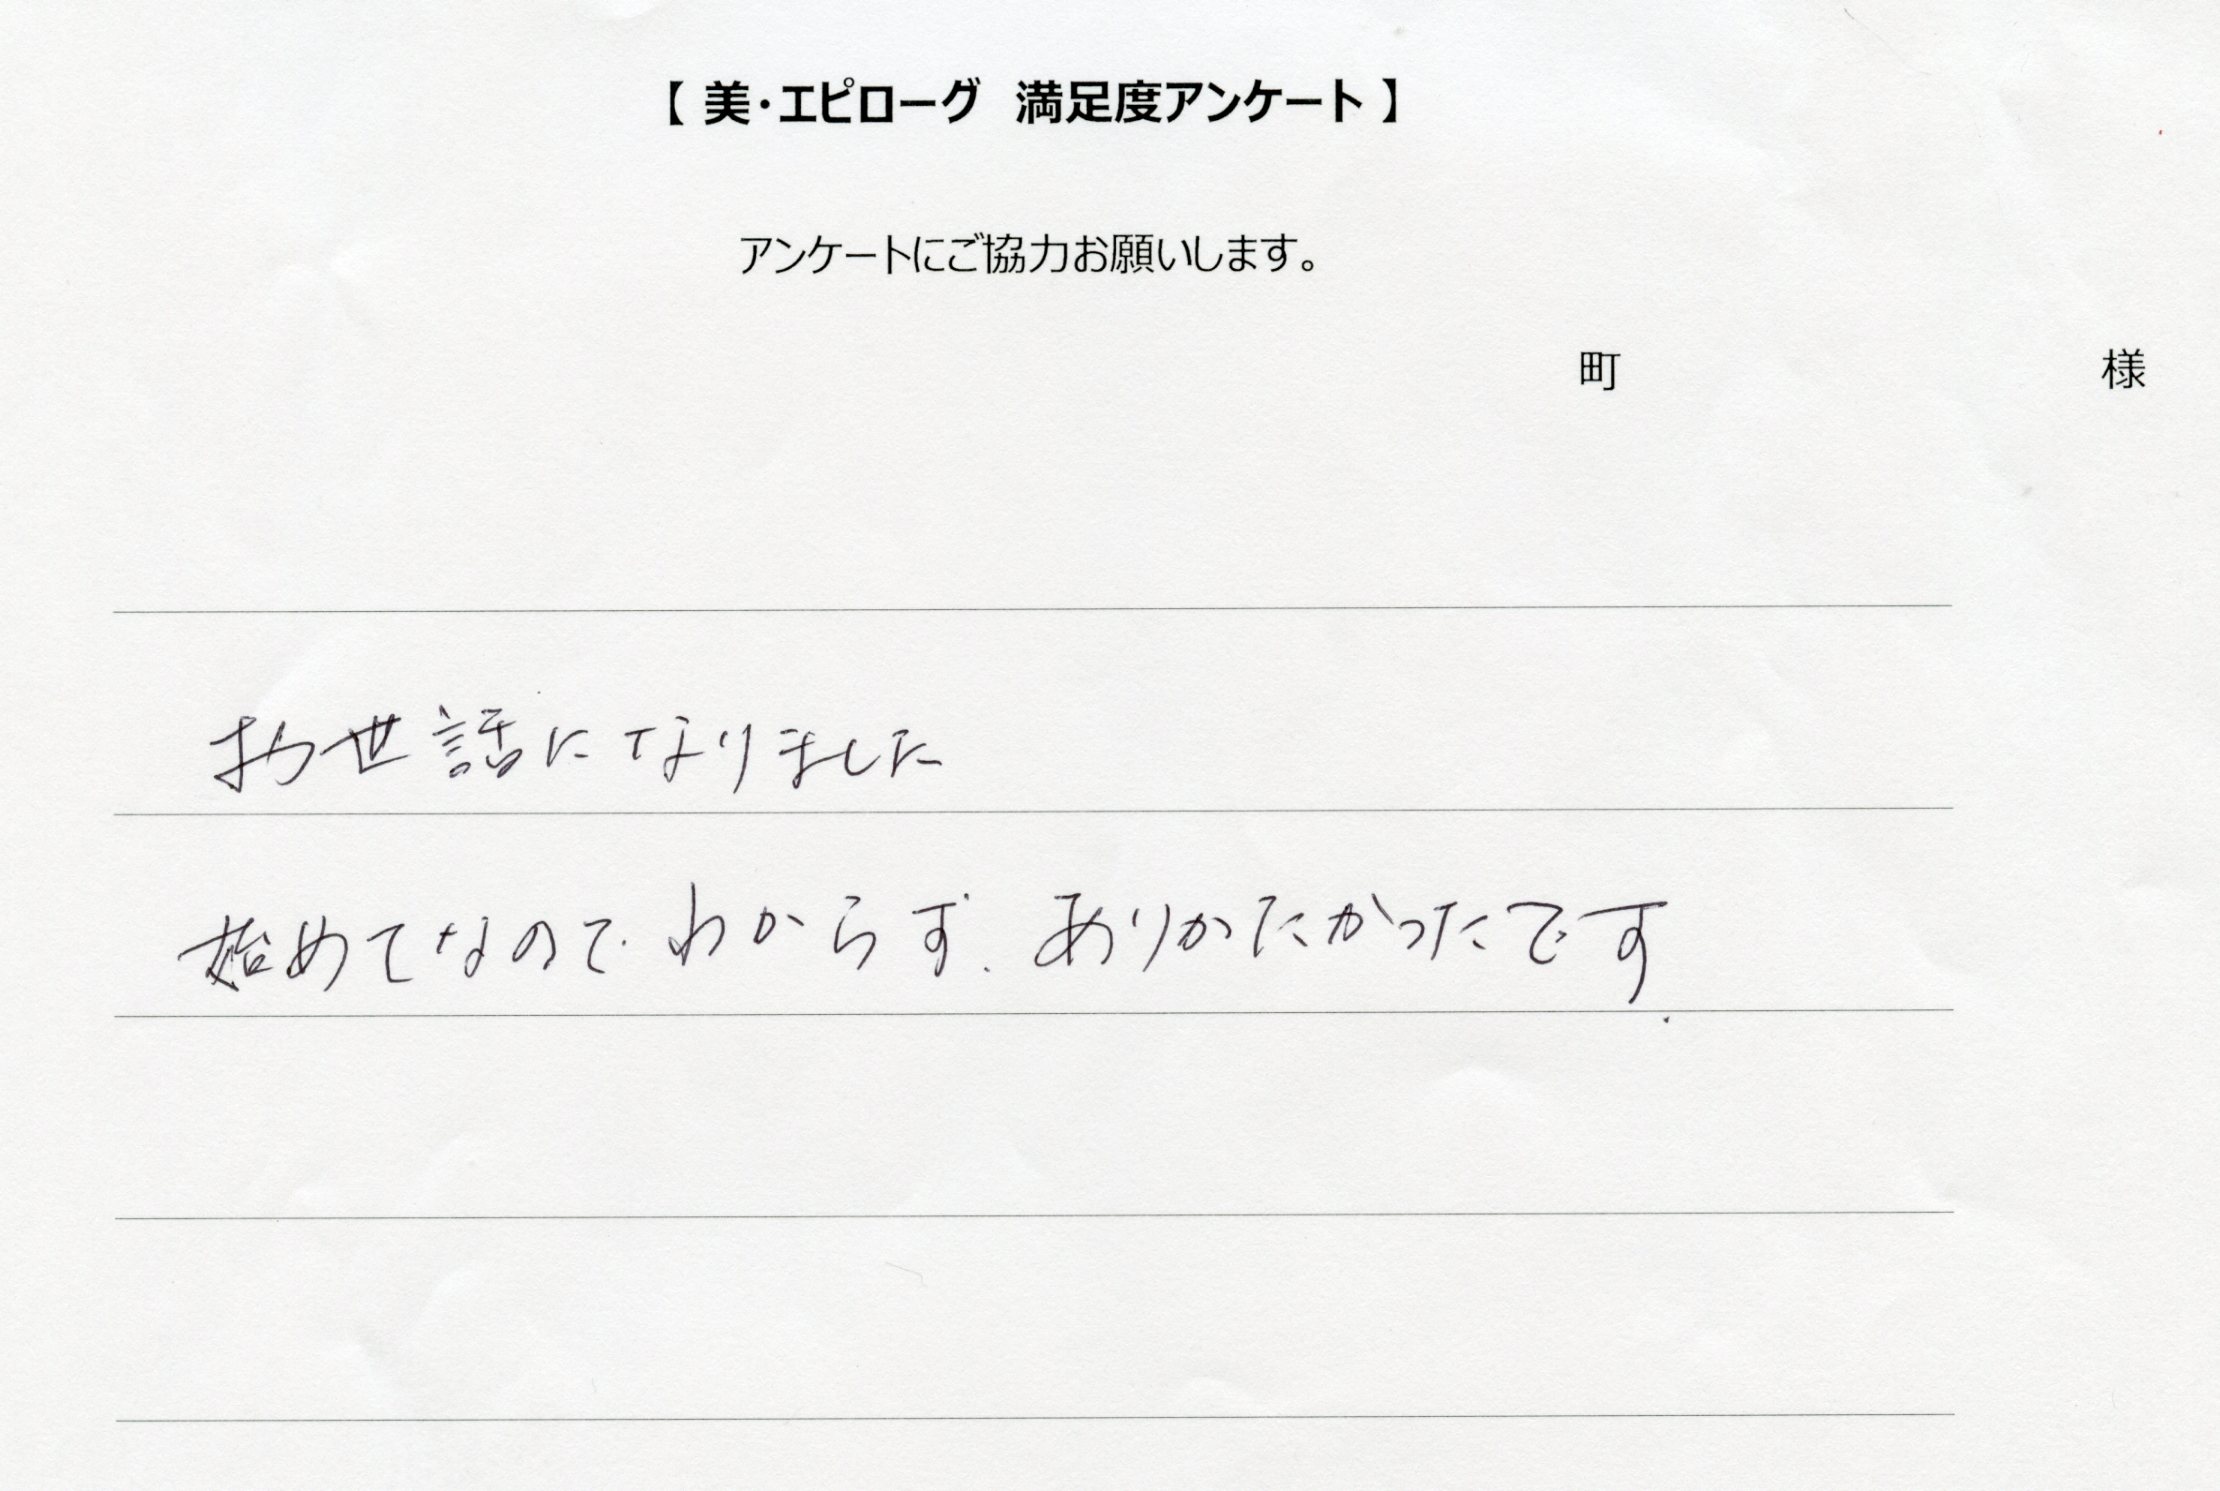 【 美・エピローグ 満足度アンケート 】
アンケートにご協力お願いします。
町 様
お世話になりました
始めてなので わからず、ありがたかったです